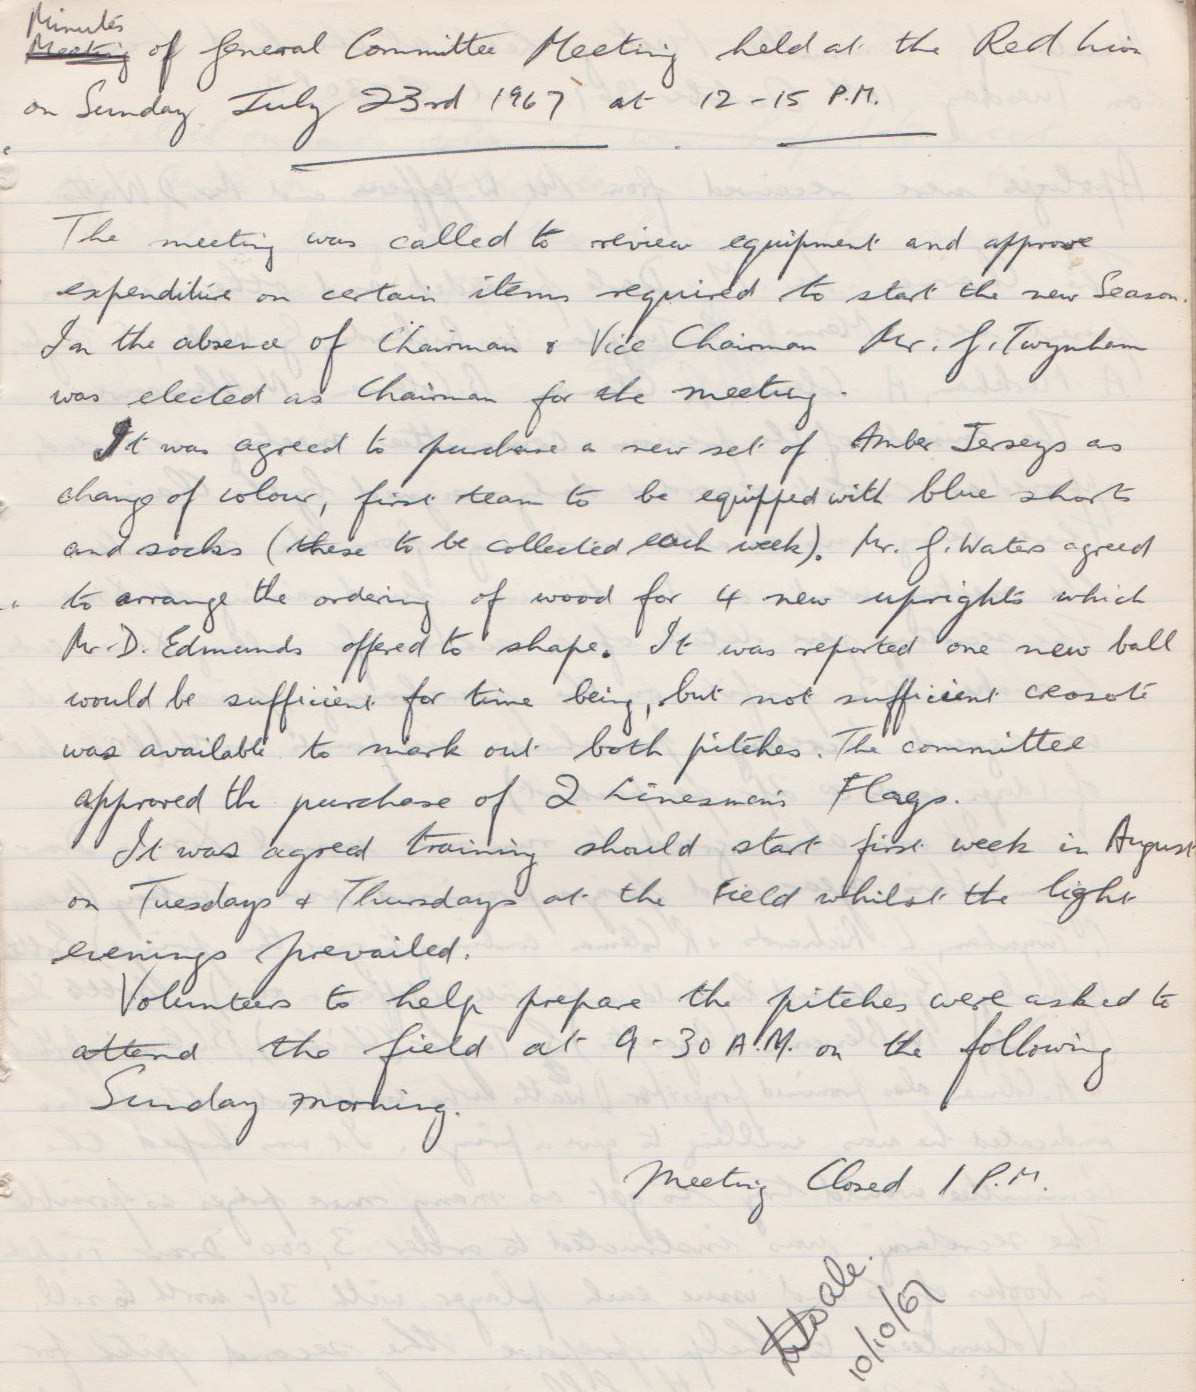 Minutes
Meeting of General Committee Meeting held at the Red Lion
on Sunday July 23rd 1967 at 12-15 P.M.
The meeting was called to review equipment and approve
expenditure on certain items required to start the new Season.
In the absence of Chairman & Vice Chairman Mr. G. Twynham
was elected as Chairman for the meeting.
It was agreed to purchase a new set of Amber Jerseys as
change of colour, first team to be equipped with blue shorts
and socks (these to be collected each week). Mr. G. Waters agreed
to arrange the ordering of wood for 4 new uprights which
Mr. D. Edmunds offered to shape. It was reported one new ball
would be sufficient for time being, but not sufficient creosote
was available to mark out both pitches. The committee
approved the purchase of 2 Linesmen's Flags.
It was agreed training should start first week in August
on Tuesdays & Thursdays at the Field whilst the light
evenings prevailed.
Volunteers to help prepare the pitches were asked to
attend the field at 9-30 A.M. on the following
Sunday morning.
Meeting Closed 1 P.M.
10/10/67